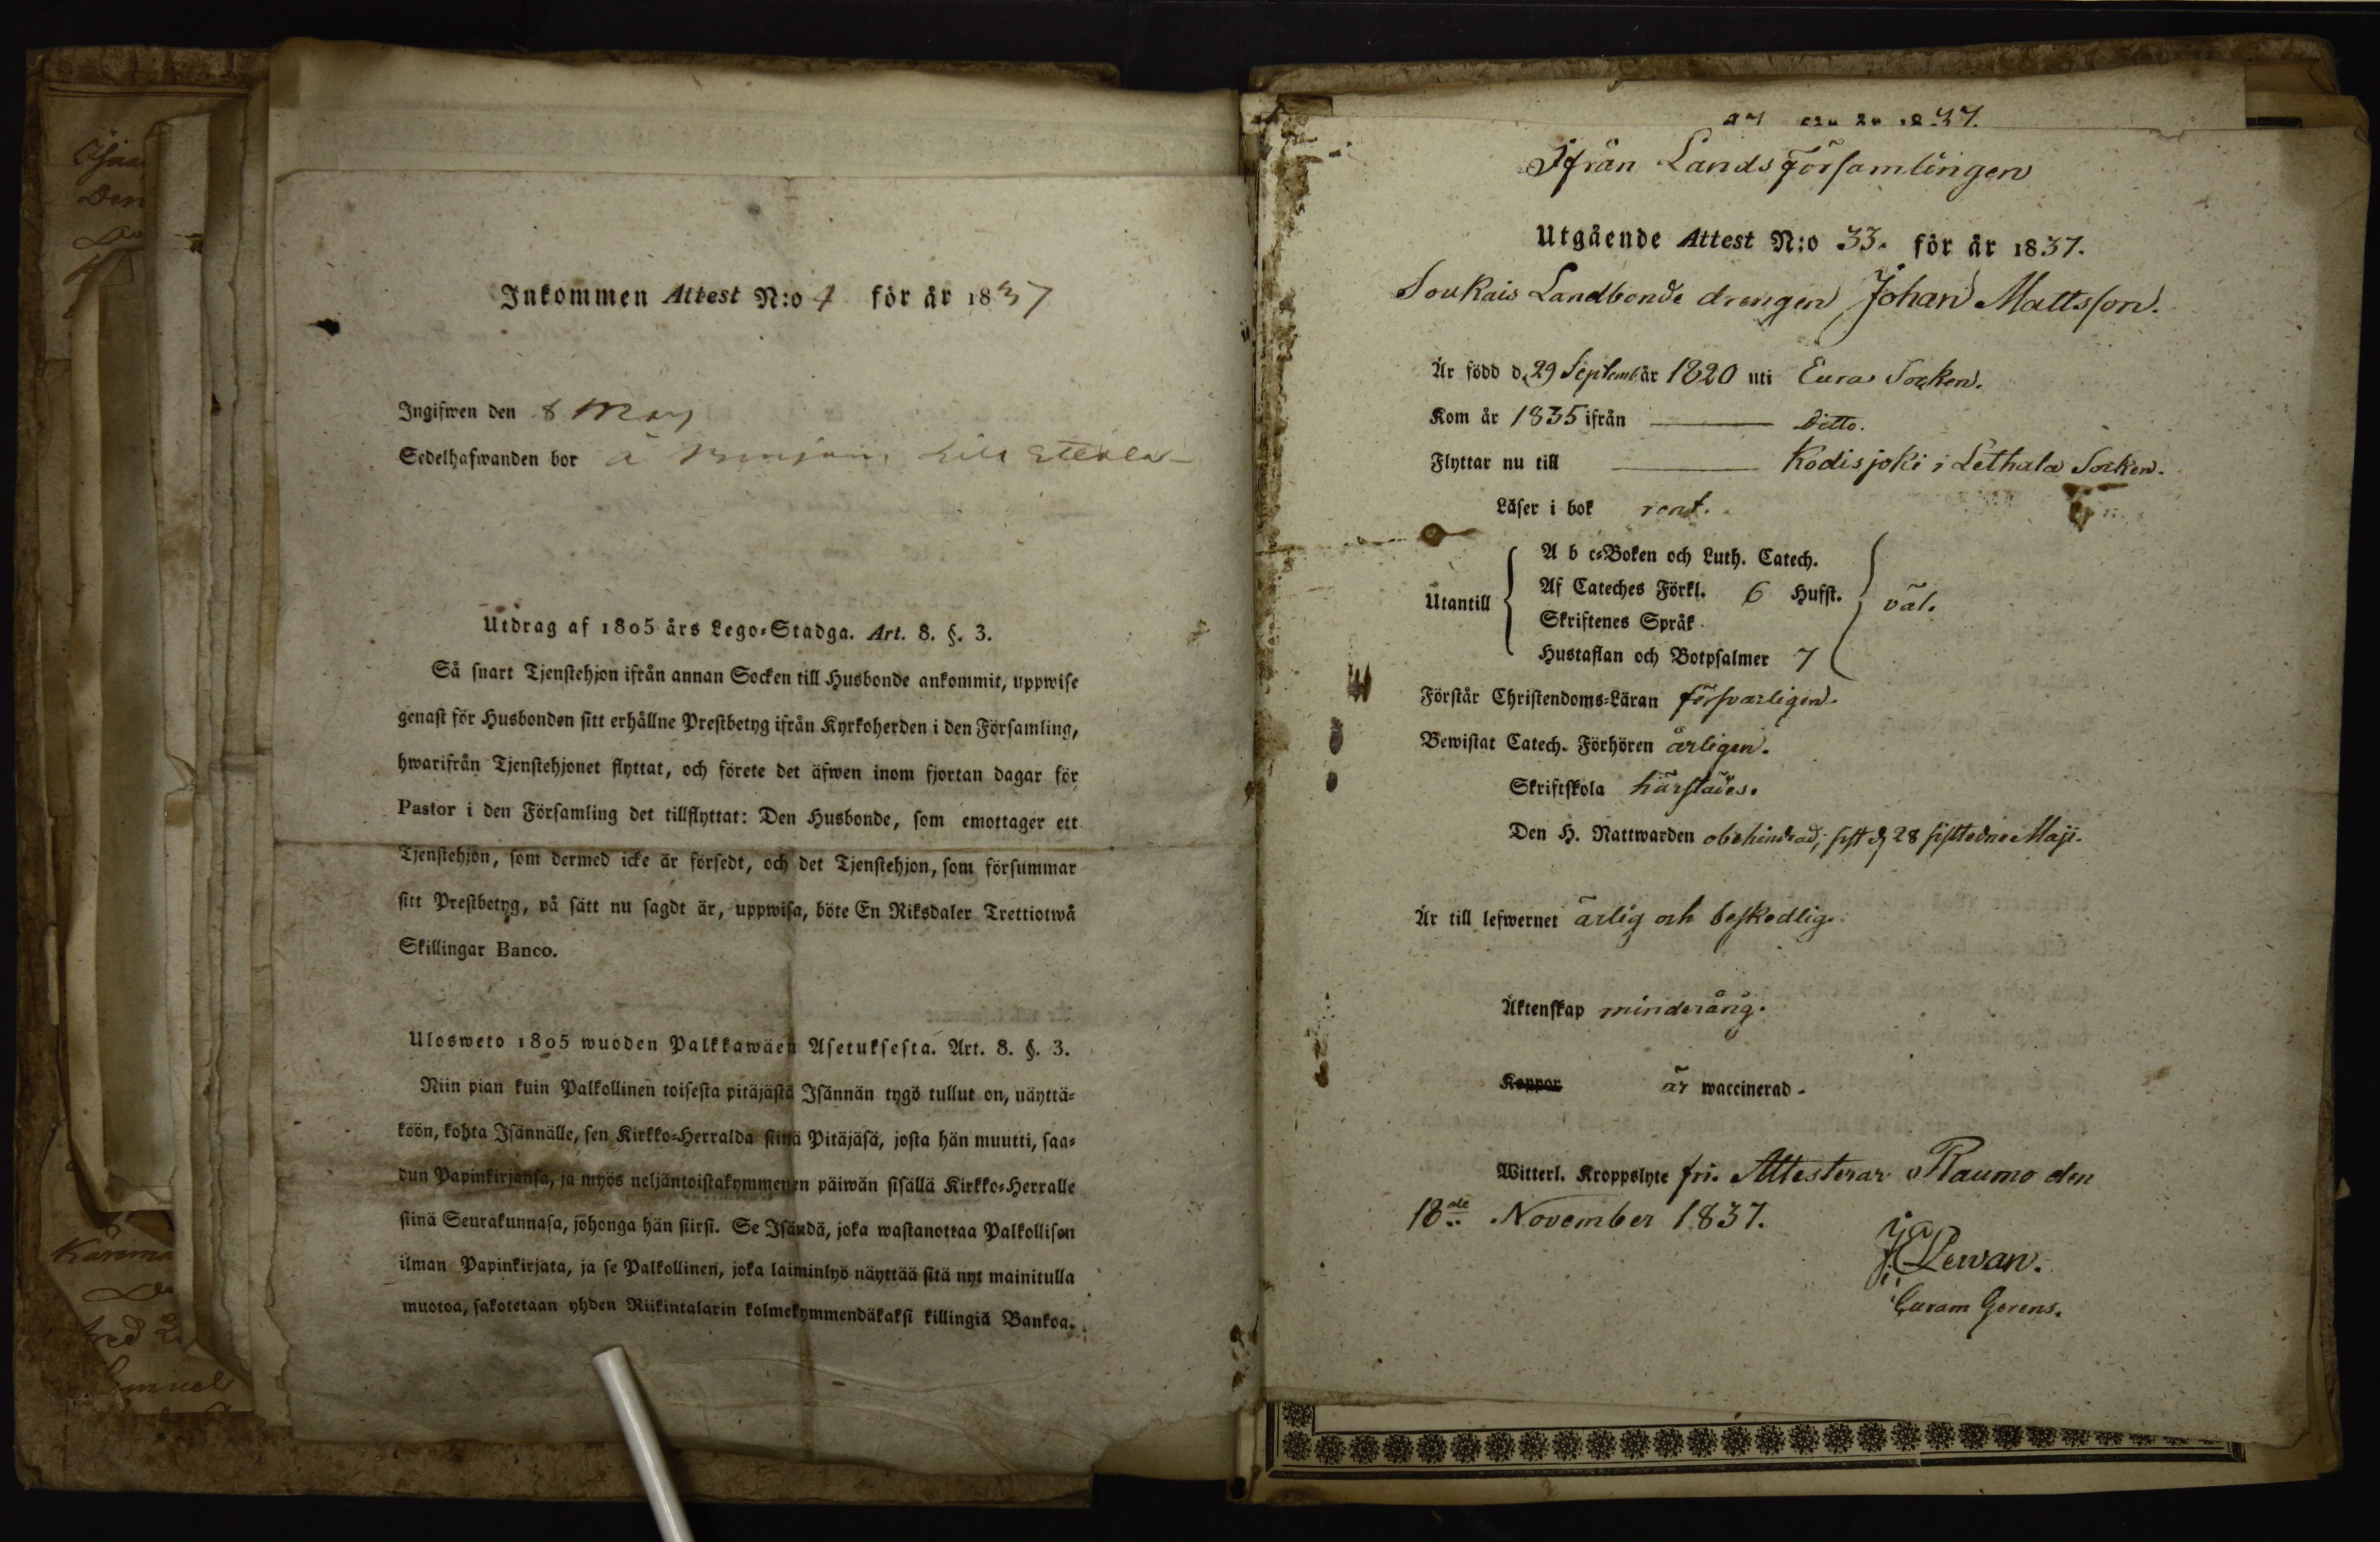 Inkommen Attest N:o 4 för år 1837
Ingifwen den 8 May
Sedelhafwanden bor
Utdrag af 1805 års Lego-Stadga. Art. 8. §. 3.
Så snart Tjenstehjon ifrån annan Socken till Husbonde ankommit, uppwise
genast för Husbonden sitt erhållne Prestbetyg ifrån Kyrkoherden i den Församling,
hwarifrån Tjenstehjonet flyttat, och förete det äfwen inom fjortan dagar för
Pastor i den Församling det tillflyttat: Den Husbonde, som emottager ett
Tjenstehjon, som dermed icke är försedt, och det Tjenstehjon, som försummar
sitt Prestbetyg, på sätt nu sagdt är, uppwisa, böte En Riksdaler Trettiotwå
Skillingar Banco.
Ulosweto 1805 wuoden Palkkawäen Asetuksesta. Art. 8. §. 3.
Niin pian kuin Palkollinen toisesta pitäjästä Isännän tygö tullut on, näyttä-
köön, kohta Isännälle, sen Kirkko-Herralda siinä Pitäjäsä, josta hän muutti, saa-
dun Papinkirjansa, ja myös neljäntoistakymmenen päiwän sisällä Kirkko-Herralle
siinä Seurakunnasa, johonga hän siirsi. Se Isändä, joka wastanottaa Palkollisen
ilman Papinkirjata, ja se Palkollinen, joka laiminlyö näyttää sitä nyt mainitulla
muotoa, sakotetaan yhden Riikintalarin kolmekymmendäkaksi killingiä Bankoa.
Ifrån Lands Församlingen
Utgående Attest N:o 33. för år 1837.
Soukais Landbonde drengen Johan Mattsson.
Är född d. 29 Septemb år 1820 uti Eura Socken.
Kom år 1835 ifrån Ditto.
Flyttar nu till Kodisjoki i Lethala Socken.
Läser i bok rent.
A b c-Boken och Luth. Catech.
Utantill Af Cateches Förkl. 6 Hufst. väl.
Skriftenes Språk
Hustaflan och Botpsalmer 7
Förstår Christendoms-Läran försvarligen.
Bewistat Catech. Förhören årligen.
Skriftskola härstädes.
Den H. Nattwarden obehindrad, sist d. 28 sistledne Maji.
Är till lefwernet ärlig och beskedlig.
Äktenskap minderårig.
Koppor är waccinerad.
Witterl. Kroppslyte fri. Attesterar Raumo den
18de November 1837.
Lewan.
Curam Gerens.